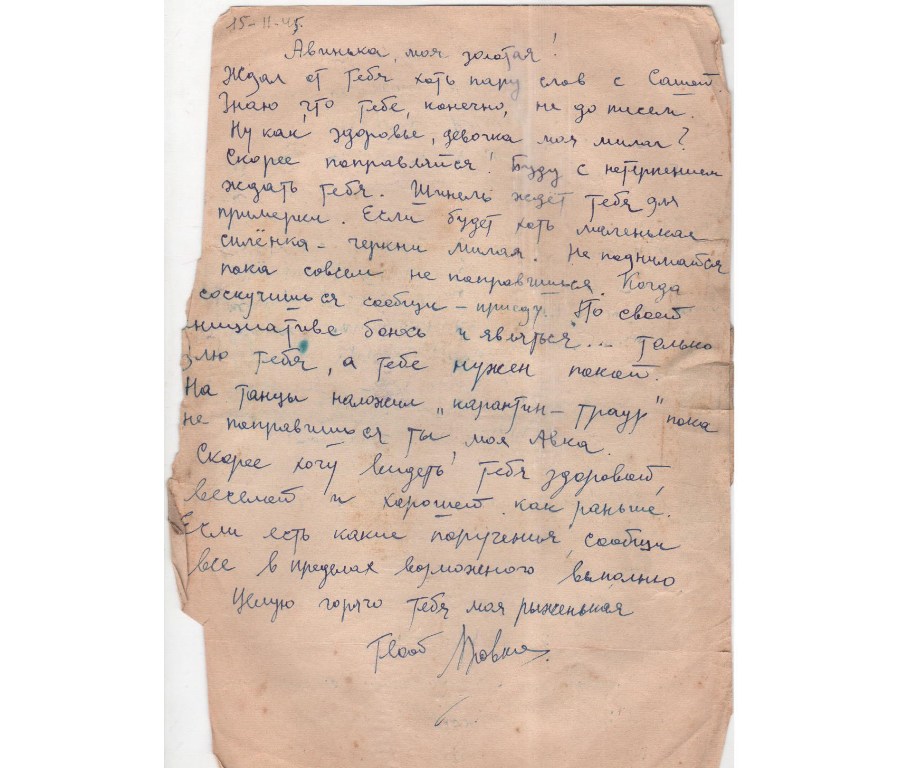 15-II-45.
Авинька, моя золотая!
Ждал от тебя хоть пару слов с Сашей.
Знаю, что тебе, конечно, не до писем.
Ну как здоровье, девочка моя милая?
Скорее поправляйся! Буду с нетерпением
ждать тебя. Шинель ждёт тебя для
примерки. Если будет хоть маленькая
силёнка – черкни милая. Не поднимайся
пока совсем не поправишься. Когда
соскучишься сообщи – приеду. По своей
инициативе боюсь и явиться... только
злю тебя, а тебе нужен покой.
На танцы наложил „карантин – траур" пока
не поправишься ты, моя Авка.
Скорее хочу видеть тебя здоровой,
веселой и хорошей как раньше.
Если есть какие поручения, сообщи
все в пределах возможного выполню
Целую горячо тебя моя рыженькая
Твой